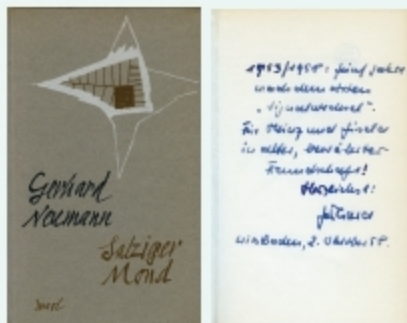 Gerhard
Neumann
Salziger
Mond
Insel
1953/1958: fünf Jahre
nach dem ersten
Für Heinz und Gisela
in alter, bewährter
Freundschaft!
Herzlichst:
Wiesbaden, 2. Oktober 58.